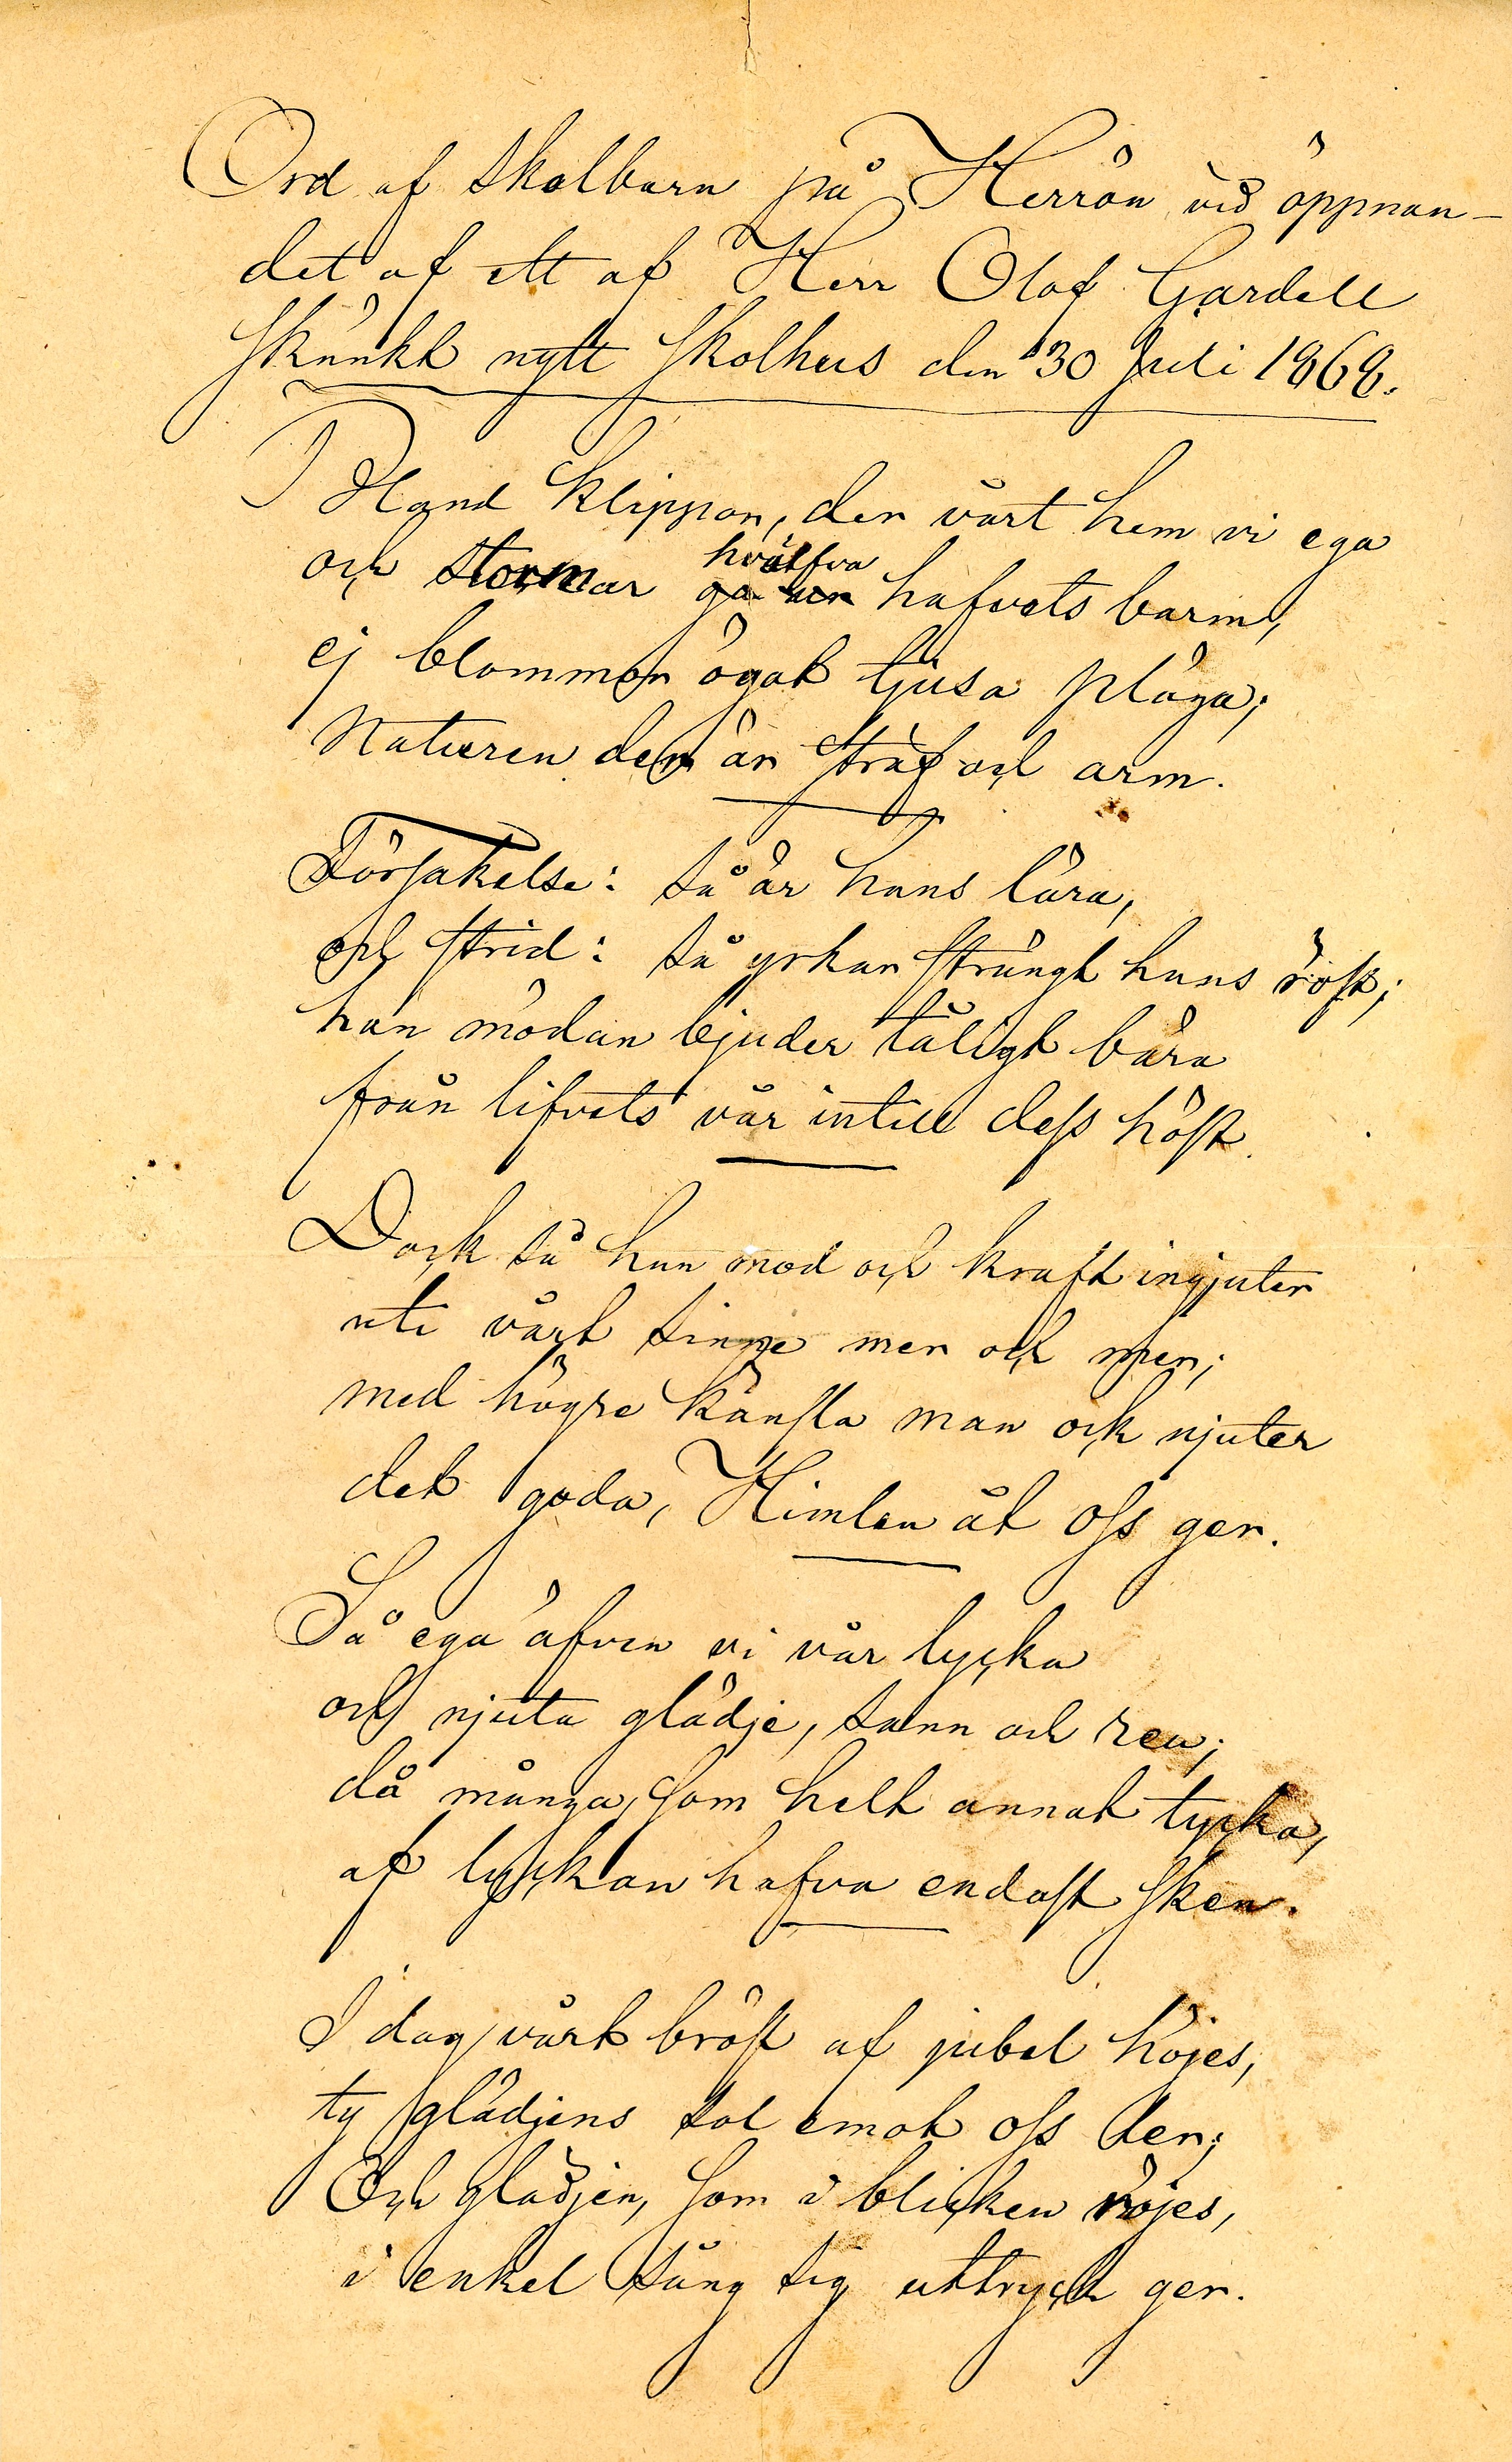 Ord af skolbarn på Herrön vid öppnan-
det af ett af Herr Olof Gardell
skänkt nytt skolhus den 30 Juli 1868.
Bland klippor, der vårt hem vi ega
och stormar hvälfva hafvets barm,
ej blommor ögat tjusa pläga;
Naturen der är sträf och arm.
Försakelse: så är hans lära,
och strid: så yrkar strängt hans röst;
han mödan bjuder tåligt bära
från lifvets vår intill dess höst.
Dock så han mod och kraft ingjuter
uti vårt sinne mer och mer;
med högre känsla man ock njuter
det goda, Himlen åt oss ger.
Så ega äfven vi vår lycka
och njuta glädje, sann och ren;
då många, som helt annat tycka,
af lyckan hafva endast sken.
I dag vårt bröst af jubel höjes,
ty glädjens sol emot oss ler;
Och glädjen, som i blicken röjes,
i enkel sång sig uttryck ger.